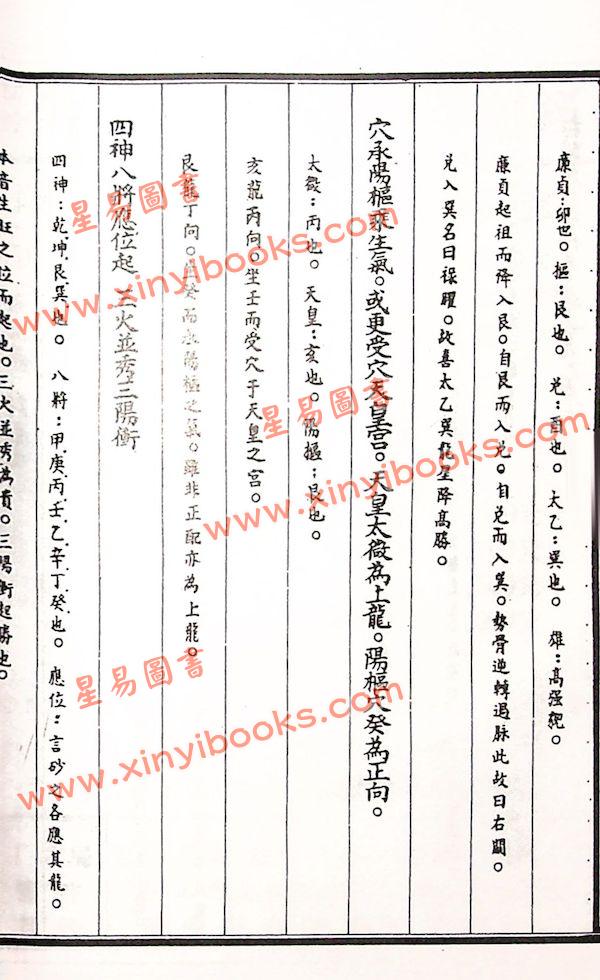 廉貞：卯也。樞：艮也。兌：酉也。太乙：巽也。雄：高强貌。
廉貞起祖而降入艮。自艮而入兌。自兌而入巽。勢骨逆轉過脉此故曰右關。
兌入巽名曰祿曜。故喜太乙巽龍星降高勝。
穴承陽樞乘生氣。或更受穴天皇宮。天皇太微為上龍。陽樞穴癸為正向。
太微：丙也。天皇：亥也。陽樞：艮也。
亥龍丙向。坐壬而受穴于天皇之宮。
艮龍丁向。癸而 陽樞之氣。雖非正配亦為上龍。
四神八將應位起。三火並秀三陽衝
四神：乾坤艮巽也。八將：甲庚丙壬乙辛丁癸也。應位：言砂之各應其龍。
本音生旺之位而起也。三火並秀為貴。三陽衝起勝也。
星易圖書
www.xinyibooks.com
星易圖書
www.xinyibooks.com
星易圖書
www.xinyibooks.com